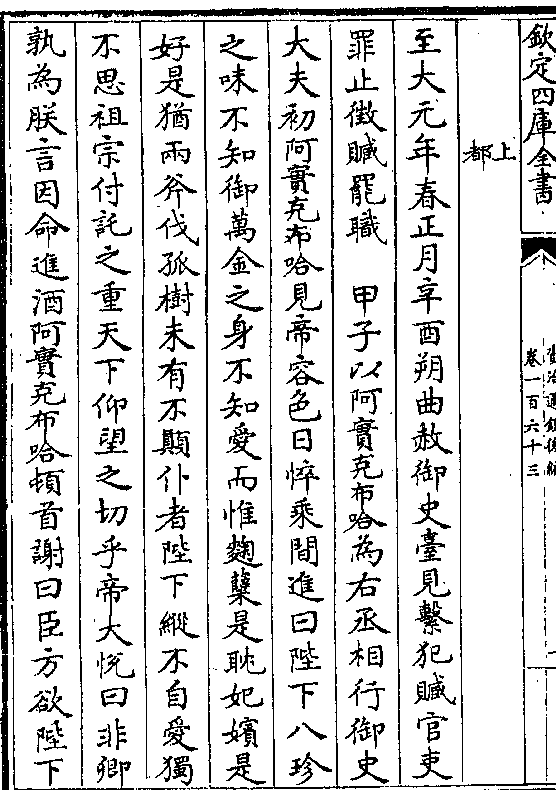 欽定四庫全書
資治通鑑後編
卷一百六十三
上都
至大元年春正月辛酉朔曲赦御史臺見繫犯贓官吏
罪止徵贓罷職　甲子以阿實克布哈為右丞相行御史
大夫初阿實克布哈見帝容色日悴乘間進曰陛下八珍
之味不知御萬金之身不知愛而惟麴糵是耽妃嬪是
好是猶兩斧伐孤樹未有不顛仆者陛下縱不自愛獨
不思祖宗付託之重天下仰望之切乎帝大悅曰非卿
孰為朕言因命進酒阿實克布哈頓首謝曰臣方欲陛下